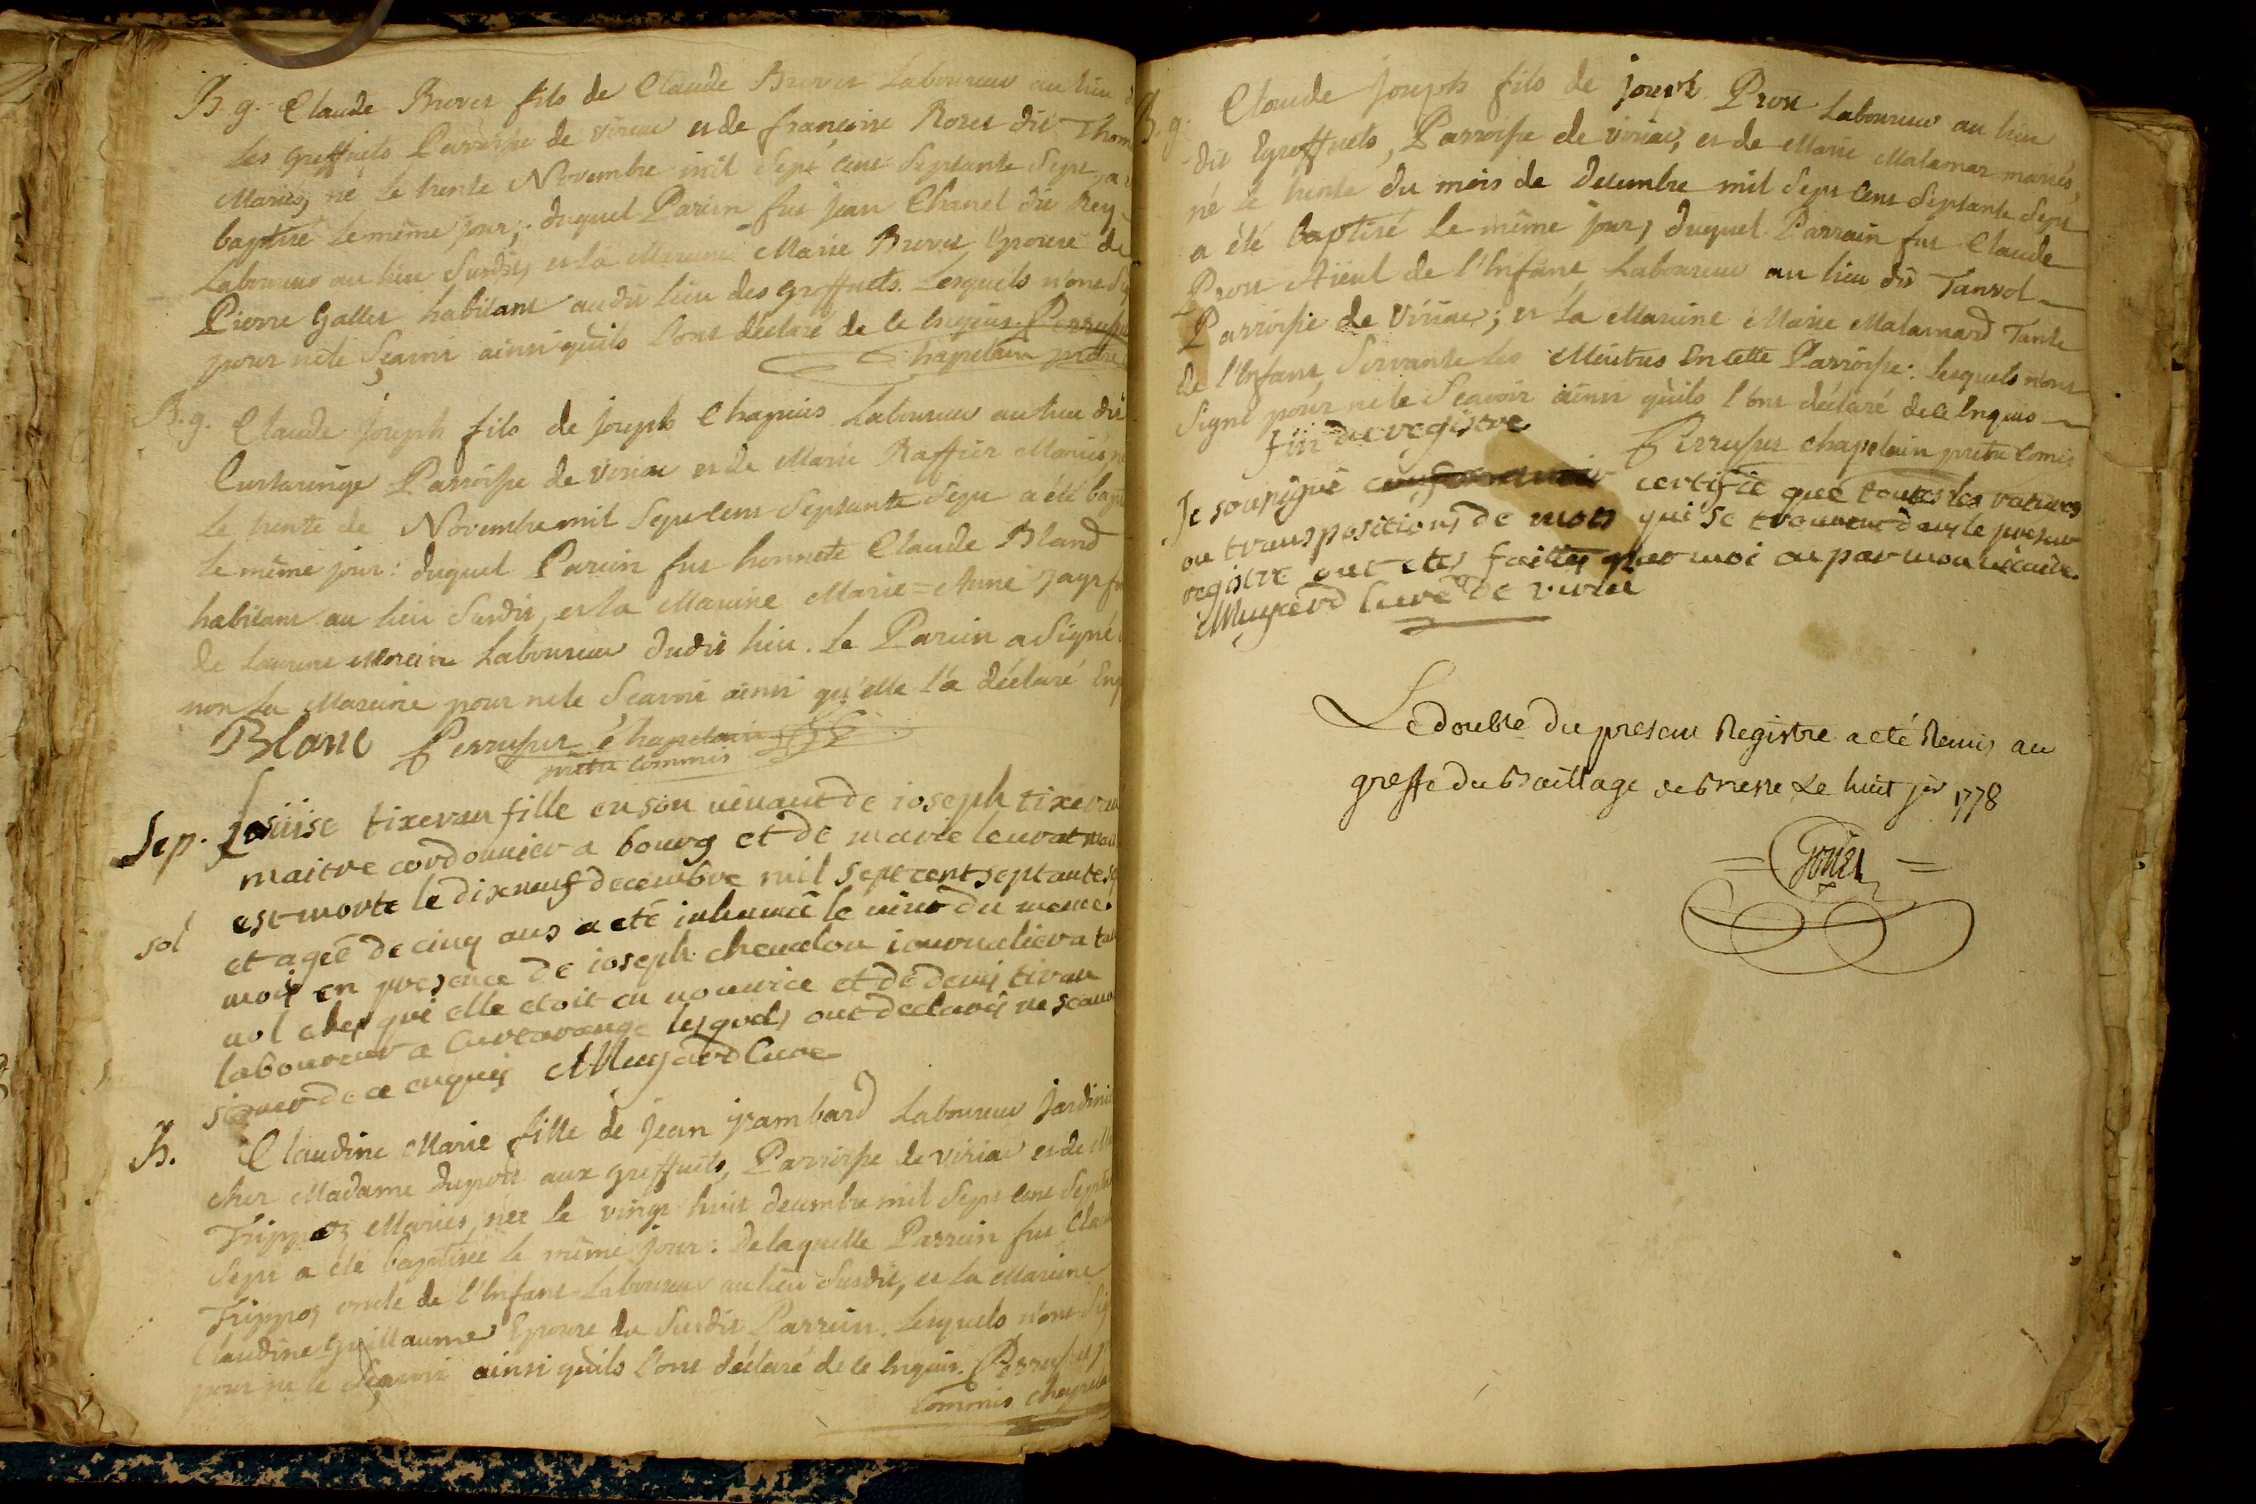 B. g. Claude Brevet fils de Claude Brevet Laboureur au lieu
les greffuets Parroisse de viriac et de francoise Roset dit Thom
Mariés, né le trente Novembre mil sept cent septante sept, a
baptisé le même jour; duquel Parrin fut jean Chanel dit Rey
Laboureur au lieu susdit, et la Mareine Marie Brevet Epouse de
Pierre Gallet habitant audit lieu des groffuets. Lesquels n'ont
pour ne le sçavoir ainsi quils l'ont déclaré de ce Enquis. Perruset
Chapelain prétre
B. g. Claude joseph fils de joseph Chapuis Laboureur au lieu dit
Curtaringe Parroisse de viriac et de Marie Raffier Mariés,
le trente de Novembre mil sept cent septante sept a été
le même jour: duquel Parrin fut honnete Claude Bland
habitant au lieu susdit, et la Mareine Marie=Anne
de Laurent Morein Laboureur dudit lieu. Le Parein a signé
non la Mareine pour ne le Scavoir ainsi qu'elle l'a déclaré
Blanc Perruset Chapelain
prétre commis
Sep. Loüise tixeran fille en son vivant de ioseph
maitre cordonnier a bourg et de marie leurat
est morte le dixneuf decembre mil sept cent septante
sol et agée de cinq ans a eté inhumée le vint du meme
mois en presence de ioseph chevalon iournalier a
nol chez qui elle etoit en nourice et de denis tiran
laboureur a Curtarange lesquels ont declarés ne scavoir
signer de ce enquis Mugard Cure
B. Claudine Marie fille de jean jambard Laboureur jardinier
chez Madame duport aux greffuets, Parroisse de viriac et de
Frippoz Mariés, née le vingt huit decembre mil sept cent
sept a été baptisée le même jour: de laquelle Parrein fut
Frippoz oncle de l'Enfant Laboureur au lieu susdit, et la Mareine
Claudine Guillaume Epouse du susdit Parrein. Lesquels n'ont
pour ne le sçavoir ainsi quils l'ont déclaré de ce Enquis. Perruset
Commis
B. g. Claude joseph fils de joseph Prost Laboureur au lieu
dit Egroffuets, Parroisse de viriac, et de Marie Malamar mariés,
né le trente du mois de Decembre mil sept cent septante sept
a été Baptisé le même jour, duquel Parrain fut Claude
Prost Aïeul de l'Enfant, Laboureur au lieu dit Tanvol
Parroisse de Viriac; et la Mareine Marie Malamard Tante
de l'Enfant Servante Les Meûtres En cette Parroisse: lesquels n'ont
signé pour ne le Scavoir ainsi qu'ils l'ont déclaré de ce Enquis
fin du registre Perruset Chapelain pretre Comis
Je soussigné certifie que toutes les ratures
ou transpositions de mots qui se trouvent dans le present
registre ont etés faittes par moi ou par mon vicaire.
Mugard Curé de viria
Le double du present Registre a eté Remis au
greffe du Baillage de bresse Le huit jer 1778